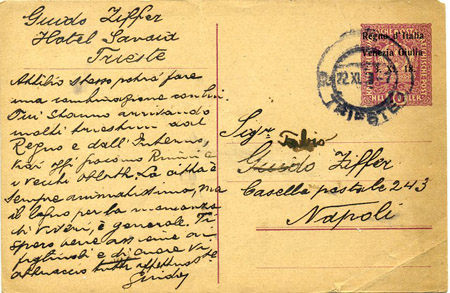 Guido Ziffer
Hotel Savoia
Trieste
Attilio stesso potrà fare
una combinazione con lui.
Qui stanno arrivando
molti triestini dal
Regno e dall'Interno,
e vecchi La città è
sempre animatissima, ma
il lagno per la mancanza
di viveri, è generale. Ti
spero bene assieme ai
figliuoli e di cuore vi
abbraccio tutti affettuoste
Guido
Regno d'Italia
Venezia Giulia
22 XI
TRIESTE
HELLER
Sigr
Fabio
Guido Ziffer
Casella postale 243
Napoli